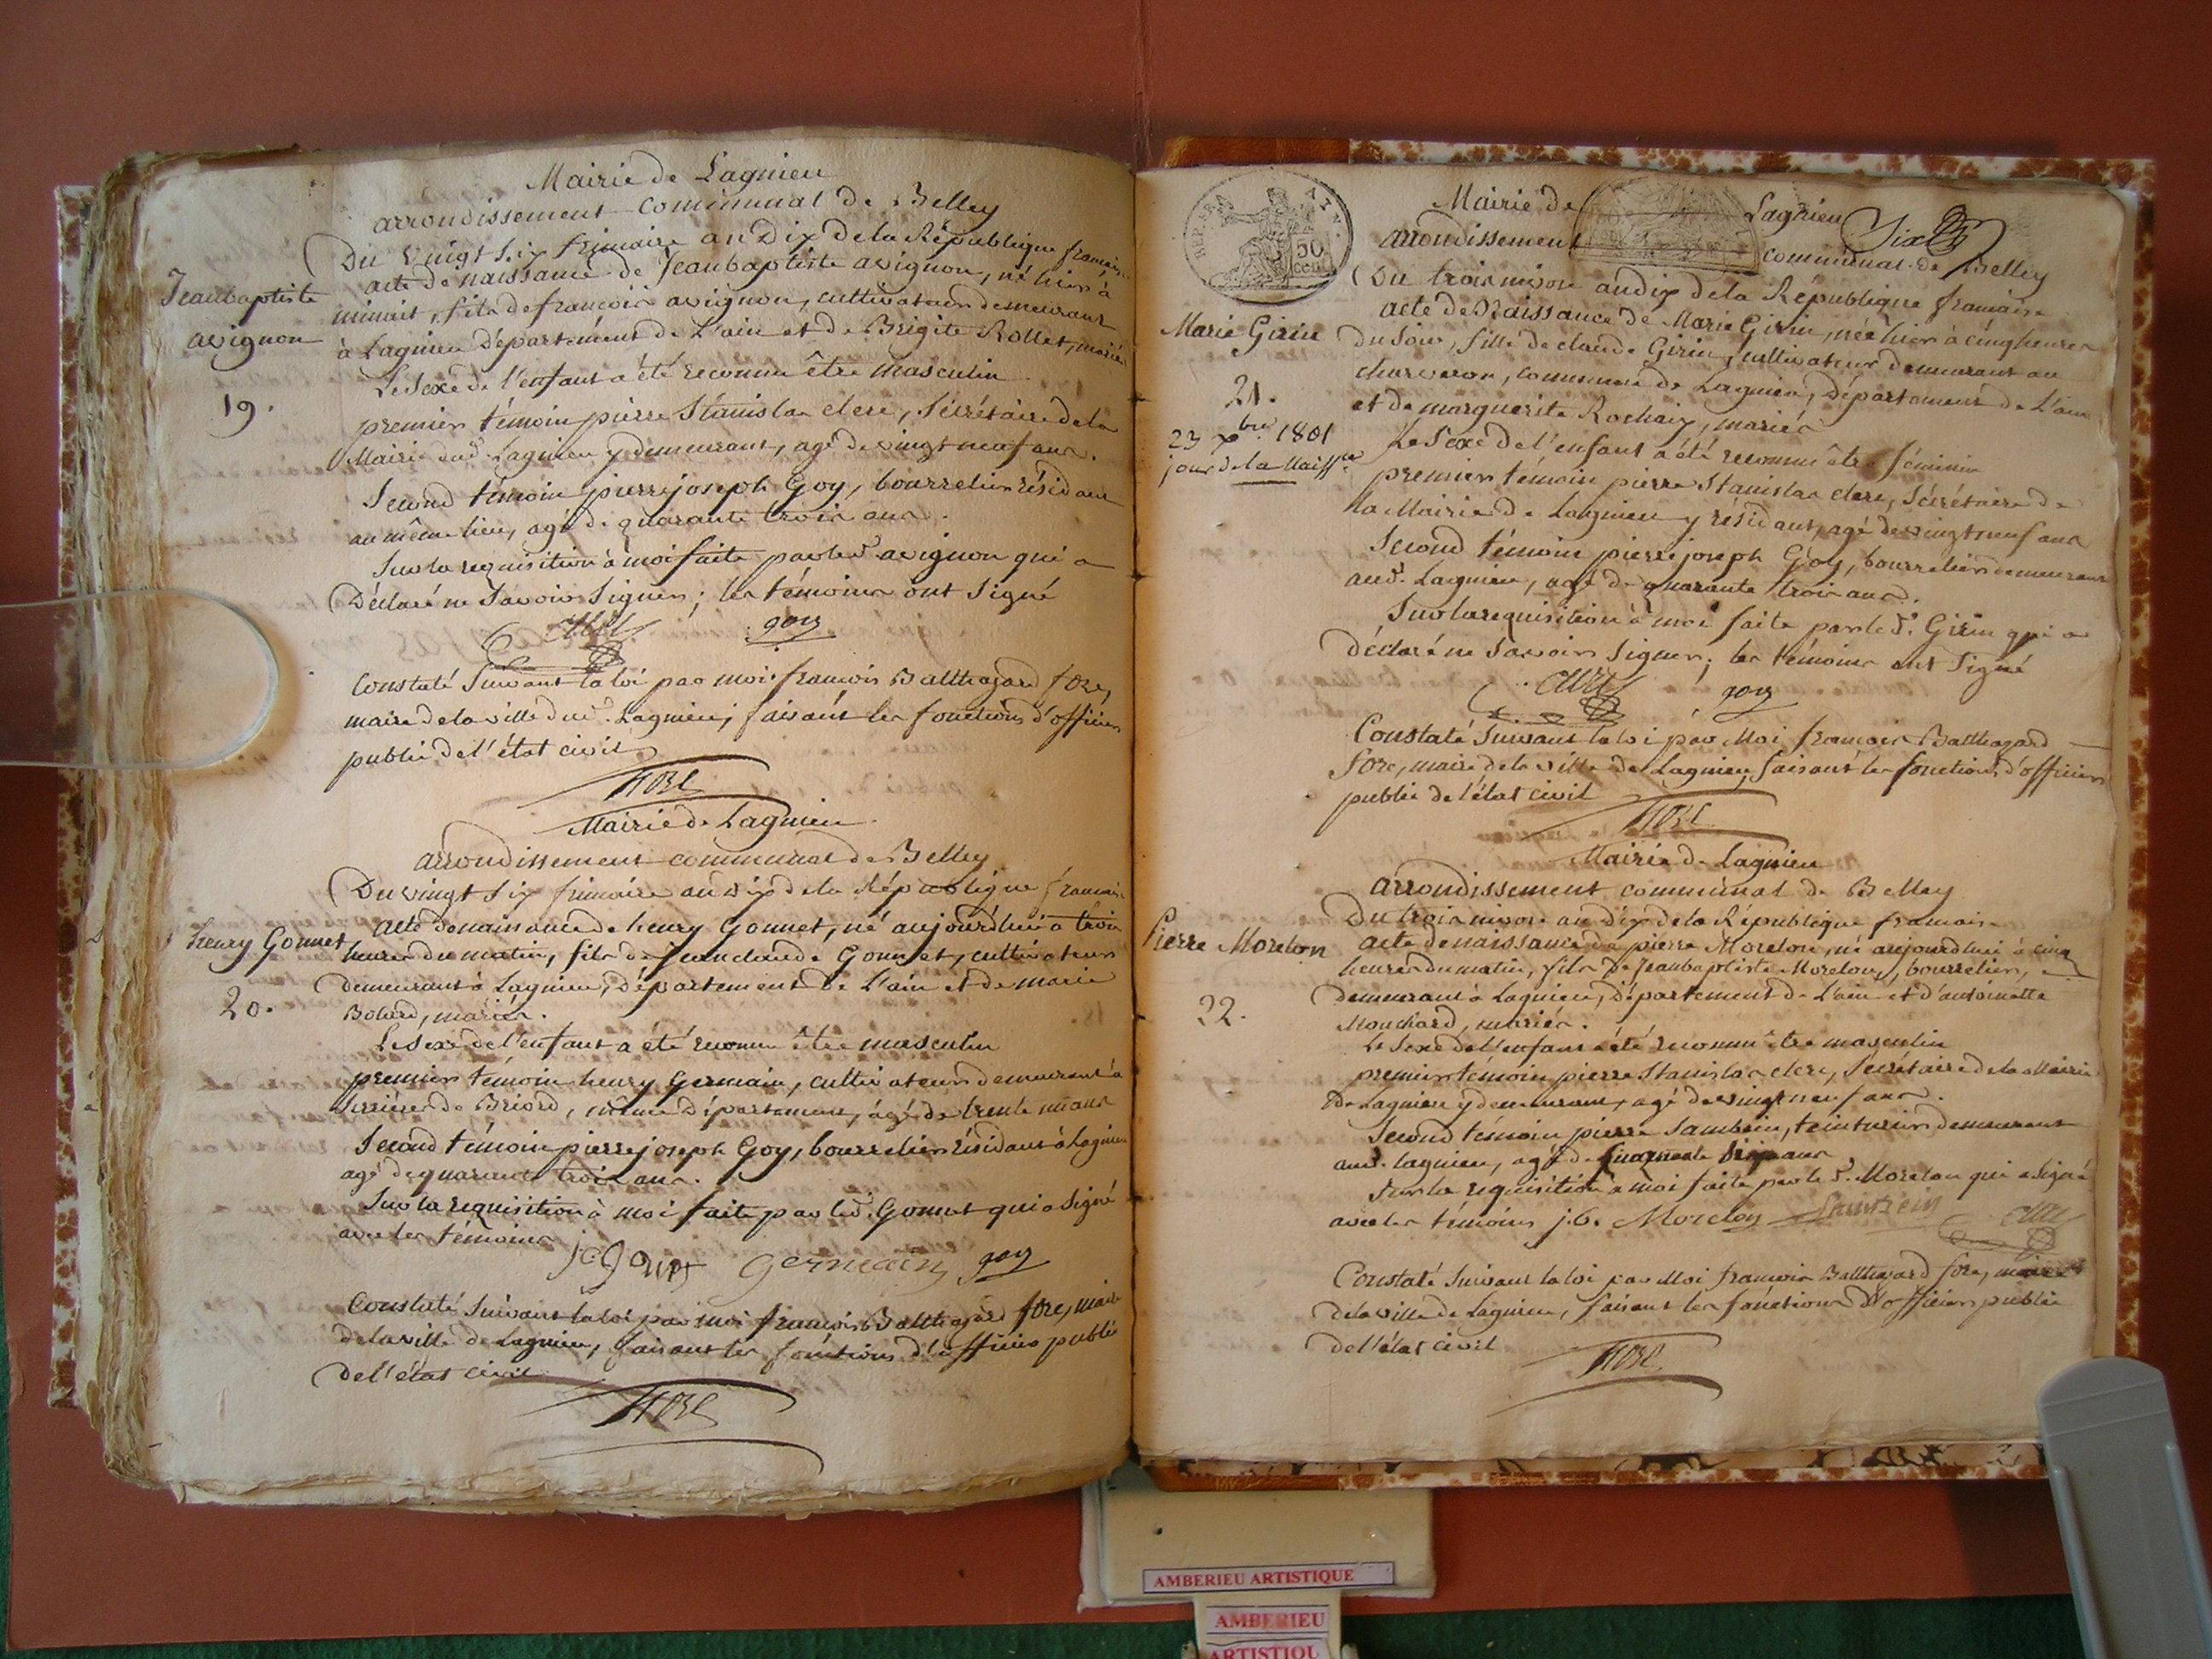 Mairie de Lagnieu
arrondissement communal de Belley
Du vingt six frimaire an dix de la République française
acte de naissance de Jeanbaptiste avignon, né hier à
Jeanbaptiste
avignon
19.
minuit, fils de françois avignon, cultivateur demeurant
à Lagnieu département de L'ain et de Brigite Rollet, mariés
Le Sexe de l'enfant a été reconnu être masculin
premier témoin pierre Stanislas clerc, Sécrétaire de la
Mairie dud. Lagnieu y demeurant, agé de vingt neuf ans.
Second témoin pierre joseph Goy, bourrelier résidant
au même lieu, agé de quarante trois ans.
Sur la requisition à moi faite par led. avignon qui a
Déclaré ne Savoir Signer; les témoins ont Signé
goy
Constaté Suivant la loi par moi françois Balthazard fore,
maire de la ville dud. Lagnieu, faisant les fonctions d'officier
public de l'état civil
Mairie de Lagnieu
arrondissement communal de Belley
Du vingt Six frimaire an dix de la République française
henry Gonnet
20.
acte de naissance de henry Gonnet, né aujourd'hui à trois
heures du matin, fils de jeanclaude Gonnet, cultivateur
demeurant à Lagnieu, département de L'ain et de marie
Bolard, mariés.
Le Sexe de l'enfant a été reconnu être masculin
premier témoin henry Germain, cultivateur demeurant à
Serrières de Briord, même département, âgé de trente
Second témoin pierre joseph Goy, bourrelier résidant à Lagnieu
agé de quarante trois ans.
Sur la requisition à moi faite par led. Gonnet qui a Signé
avec les témoins
Germain goy
Constaté Suivant la loi par moi françois Balthazard fore, maire
de la ville de Lagnieu, faisant les fonctions d'officier public
de l'état civil
REP. FRA
50
cent
Mairie de Lagnieu
Six
arrondissement communal de Belley
Du trois nivose an dix de la République française
Marie Girin
21.
23 Xbre 1801
jour de la Naissce
acte de Naissance de Marie Girin, née hier à cinq heures
du Soir, fille de claude Girin, cultivateur demeurant au
charveron, commune de Lagnieu, département de L'ain
et de marguerite Rochaix, mariés
Le Sexe de l'enfant a été reconnu être féminin
premier témoin pierre Stanislas clerc, Sécrétaire de
la Mairie de Lagnieu y résidant, agé de vingt neuf ans
Second témoin pierre joseph Goy, bourrelier demeurant
aud. Lagnieu, agé de quarante trois ans.
Sur la requisition à moi faite par led. Girin qui a
déclaré ne Savoir Signer; les témoins ont Signé
goy
Constaté Suivant la loi par Moi françois Balthazard
fore, maire de la ville de Lagnieu, faisant les fonctions d'officier
public de l'état civil
Mairie de Lagnieu
arrondissement communal de Belley
Du trois nivose an dix de la République française
Pierre Morelon
22.
acte de naissance de pierre Morelon, né aujourd'hui à cinq
heures du matin, fils de Jeanbaptiste Morelon, bourrelier,
demeurant à Lagnieu, département de L'ain et d'antoinette
Mouchard, mariés.
Le Sexe de l'enfant a été reconnu être masculin
premier témoin pierre Stanislas clerc, Secrétaire de la Mairie
de Lagnieu y demeurant, agé de vingt neuf ans.
Second témoin pierre teinturier demeurant
aud. lagnieu, agé de quarante ans
Sur la requisition à moi faite par led. Morelon qui a Signé
avec les témoins j. b. Morelon
Constaté Suivant la loi par Moi françois Balthazard fore, maire
de la ville de Lagnieu, faisant les fonctions d'officier public
de l'état civil
AMBERIEU ARTISTIQUE
AMBERIEU
ARTISTIQU